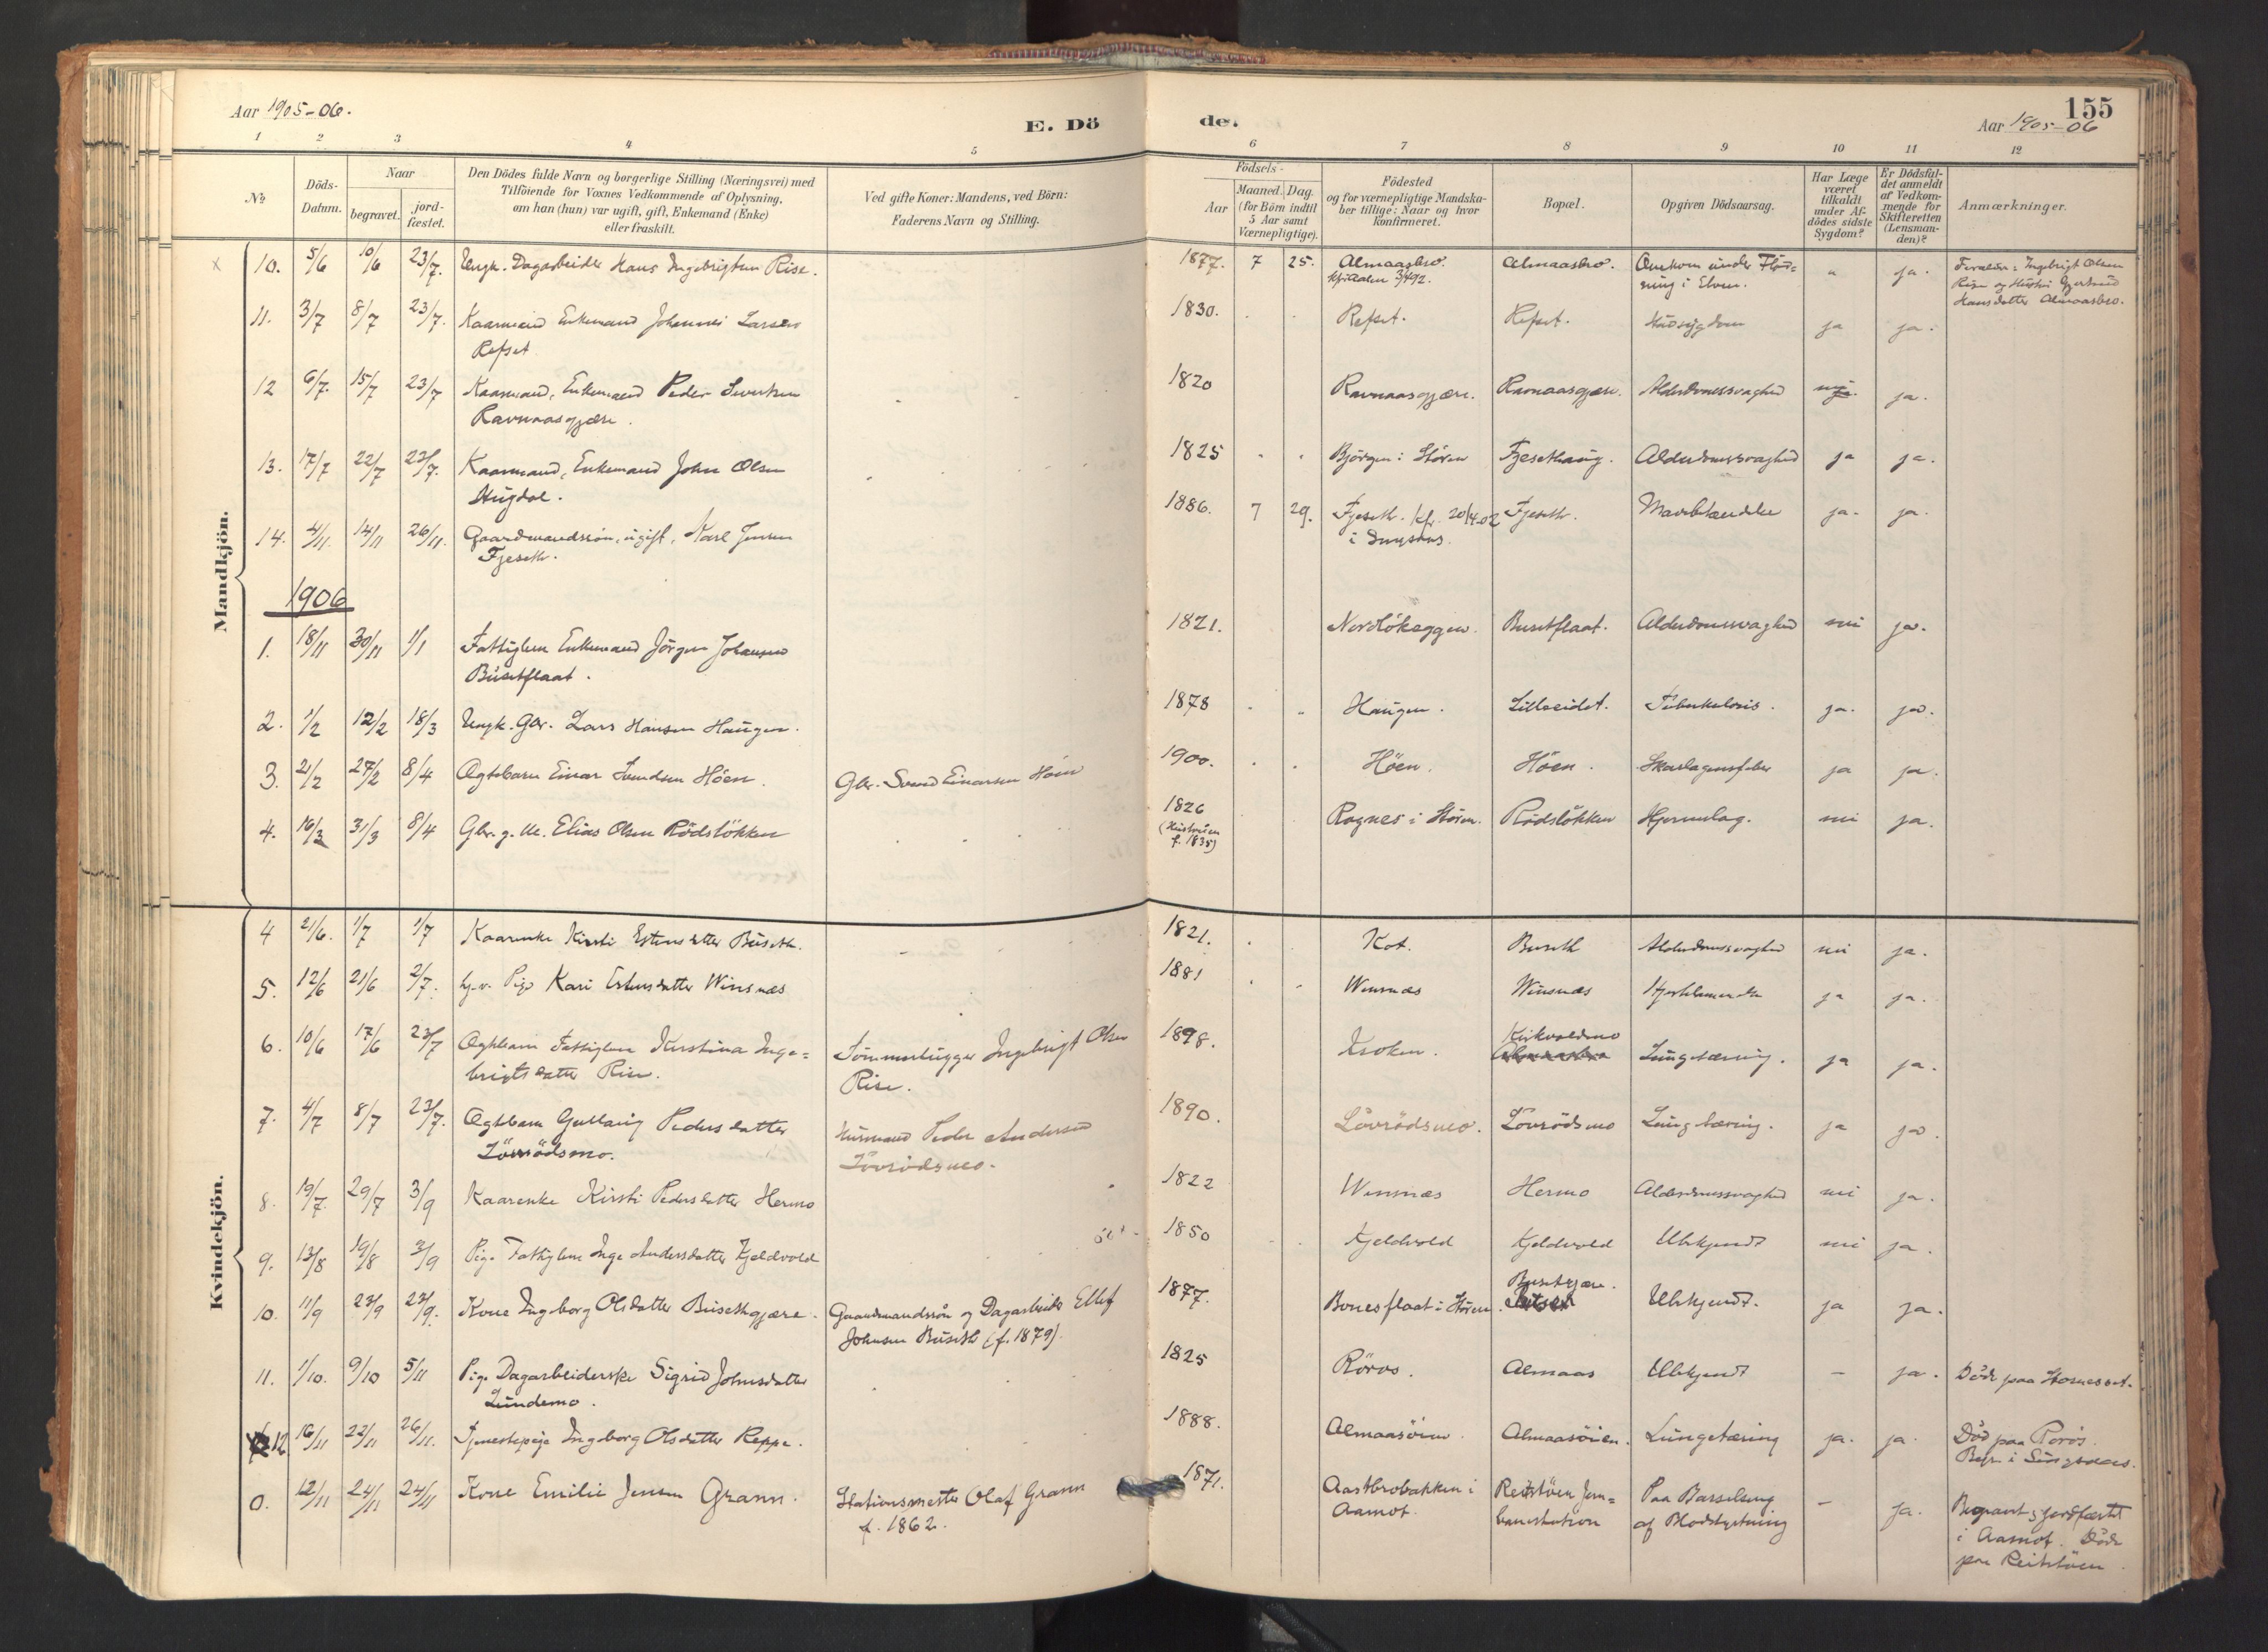 Aar 1905-06.
E. Dö
de.
155
Aar 1905-06
1 2 3 4 5 6 7 8 9 10 11 12
No
Döds-
Datum.
Naar
begravet.
jord-
fæstet.
Den Dödes fulde Navn og borgerlige Stilling (Næringsvei) med
Tilföiende for Voxnes Vedkommende af Oplysning,
om han (hun) var ugift, gift, Enkemand (Enke)
eller fraskilt.
Ved gifte Koner: Mandens, ved Börn:
Faderens Navn og Stilling.
Födsels-
Aar
Maaned. Dag.
(for Börn indtil
5 Aar samt
Værnepligtige).
Födested
og for værnepligtige Mandska-
ber tillige: Naar og hvor
konfirmeret.
Bopæl.
Opgiven Dödsaarsag.
Har Læge
været
tilkaldt
under Af-
dödes sidste
Sygdom?
Er Dödsfal-
det anmeldt
af Vedkom-
mende for
Skifteretten
(Lensman-
den)?
Anmærkninger.
Mandkjön.
10. 5/6 10/6 23/7. Ungk. Dagarbeider Hans Ingebrigtsen Rise. 1877. 7 25. Almaasbro. Almaasbro. Omkom under Flöd= ja.
ning i Elven.
Forældre: Ingebrigt Olsen
Rise og Hustru Gjertrud
Hansdatter Almaasbro.
11. 3/7 8/7 23/7. Kaarmand Enkemand Johannes Larsen 1830. Refset. Refset. ja ja.
Refset
12 6/7. 15/7 23/7 Kaarmand, Enkemand Peder Sivertsen 1820 Ravnaasgjære. Ravnaasgjære. Alderdomssvaghed ja.
Ravnaasgjære.
13. 17/7 22/7 23/7. Kaarmand, Enkemand John Olsen 1825 Bjørgen i Støren Fjesethaug. Alderdomssvaghed ja ja.
Hugdal.
14. 4/11. 14/11 26/11. Gaardmandssøn, ugift, Karl Jensen 1886. 7 29. Fjeseth. kfr. 20/4 02 Fjeseth. ja. ja.
Fjeseth.
1906
1. 18/11 30/11 1/1 Fattiglem Enkemand Jørgen Johansen 1821. Nordløkeggen. Busetflaat. Alderdomssvaghed nei ja.
Busetflaat.
2. 1/2 12/2 18/3 Ungk. Gbr. Lars Hansen Haugen. 1878 Haugen. Lilleeidet. Tuberkulosis. ja. ja.
3. 21/2 27/2 8/4 Ægtebarn Einar Svendsen Höen. Gbr. Svend Einarsen Höen 1900. Höen. Höen. Skarlagensfeber ja ja.
4. 16/3 31/3 8/4 Gbr. g. M. Elias Olsen Rödslökken 1826 Rognes i Støren. Rödslökken Hjerneslag. nei ja.
(Hustruen
f. 1835)
Kvindekjön.
4 21/6. 1/7 1/7 Kaarenke Kirsti Estensdatter Buseth. 1821. Kot. Buseth Alderdomssvaghed nei ja.
5. 12/6 21/6 2/7. Pige Kari Estensdatter Winsnæs 1881 Winsnæs Winsnæs ja ja.
6. 10/6 17/6 23/7 Ægtebarn Fattiglem Kirstina Inge= Tømmerhugger Ingebrigt Olsen 1898. Kroken. Kirkvoldmo Lungetæring. ja ja.
brigtsdatter Rise. Rise.
7. 4/7 8/7 23/7. Ægtebarn Gullaug Pedersdatter Husmand Peder Andersen 1890. Lövrödsmo. Lövrödsmo Lungetæring. ja ja.
Lövrödsmo. Lövrödsmo.
8. 19/7. 29/7 3/9 Kaarenke Kirsti Pedersdatter Hermo 1822 Winsnæs Hermo Alderdomssvaghed nei ja.
9. 13/8 19/8 3/9 Pige Fattiglem Inge Andersdatter Kjeldvold 1850 Kjeldvold Kjeldvold Ubekjendt nei ja.
10. 11/9 23/9 23/9. Kone Ingeborg Olsdatter Busethgjære. Gaardmandssøn og Dagarbeider Ellef 1877. Bonesflaat i Støren. Busetgjære. Ubekjendt. ja ja.
Johnsen Buseth (f. 1879).
11. 1/10. 9/10 5/11 Pige Dagarbeiderske Sigrid Johnsdatter 1825 Röros. Almaas Ubekjendt - ja. Döde paa
Lundemo.
12 16/11 22/11 26/11. Tjenestepige Ingeborg Olsdatter Reppe. 1888. Almaasöien. Almaasöien. Lungetæring ja. ja. Död paa Röros.
Begr. i Singsaas.
0. 12/11 24/11 24/11 Kone Emilie Jensen Grann. Stationsmester Olaf Grann 1871. Aastbrobakken i Reitstöen Jern= Paa Barselseng - ja. Begravet & jordfæstet
f. 1862. Aamot. banestation af Blodstyrtning i Aamot. Döde
paa Reitstöen.